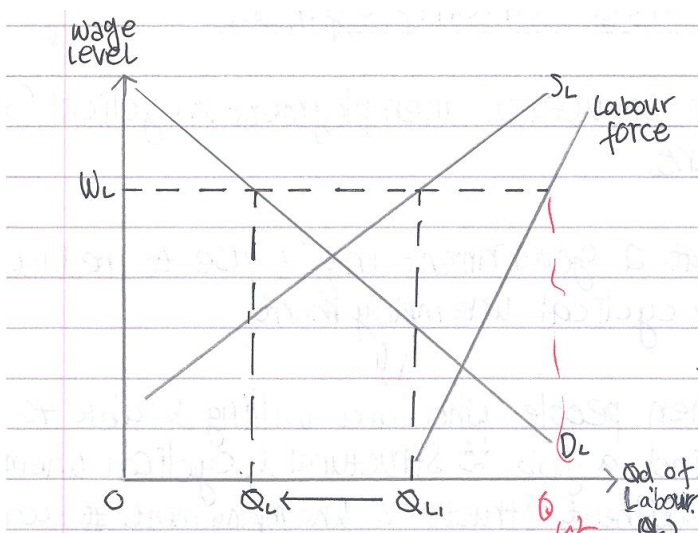 wage
level
SL
Labour
force
WL
DL
O
QL
QL1
Qd of
Labour
(QL)
Q